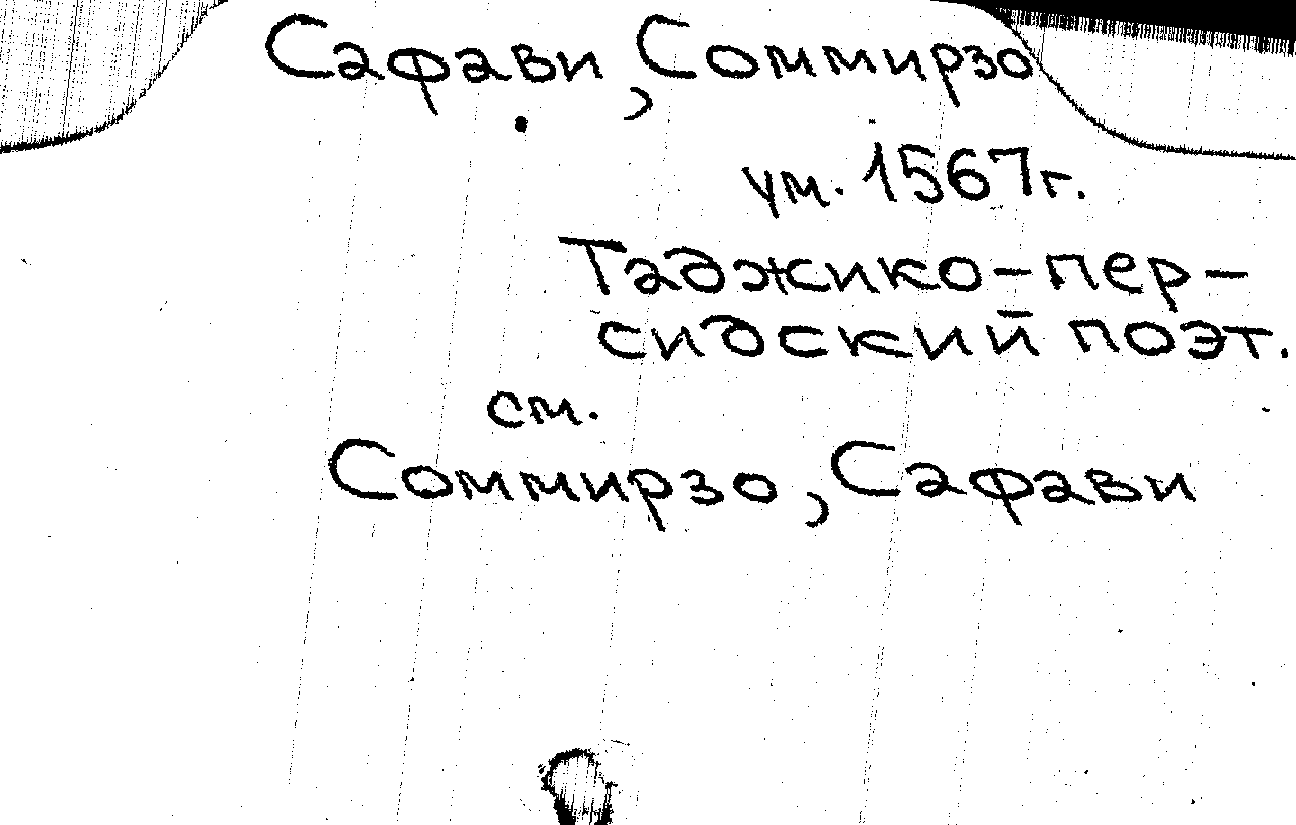 Сафави, Соммирзо
ум. 1567г.
Таджико-пер-
сидский поэт.
см.
Соммирзо, Сафави